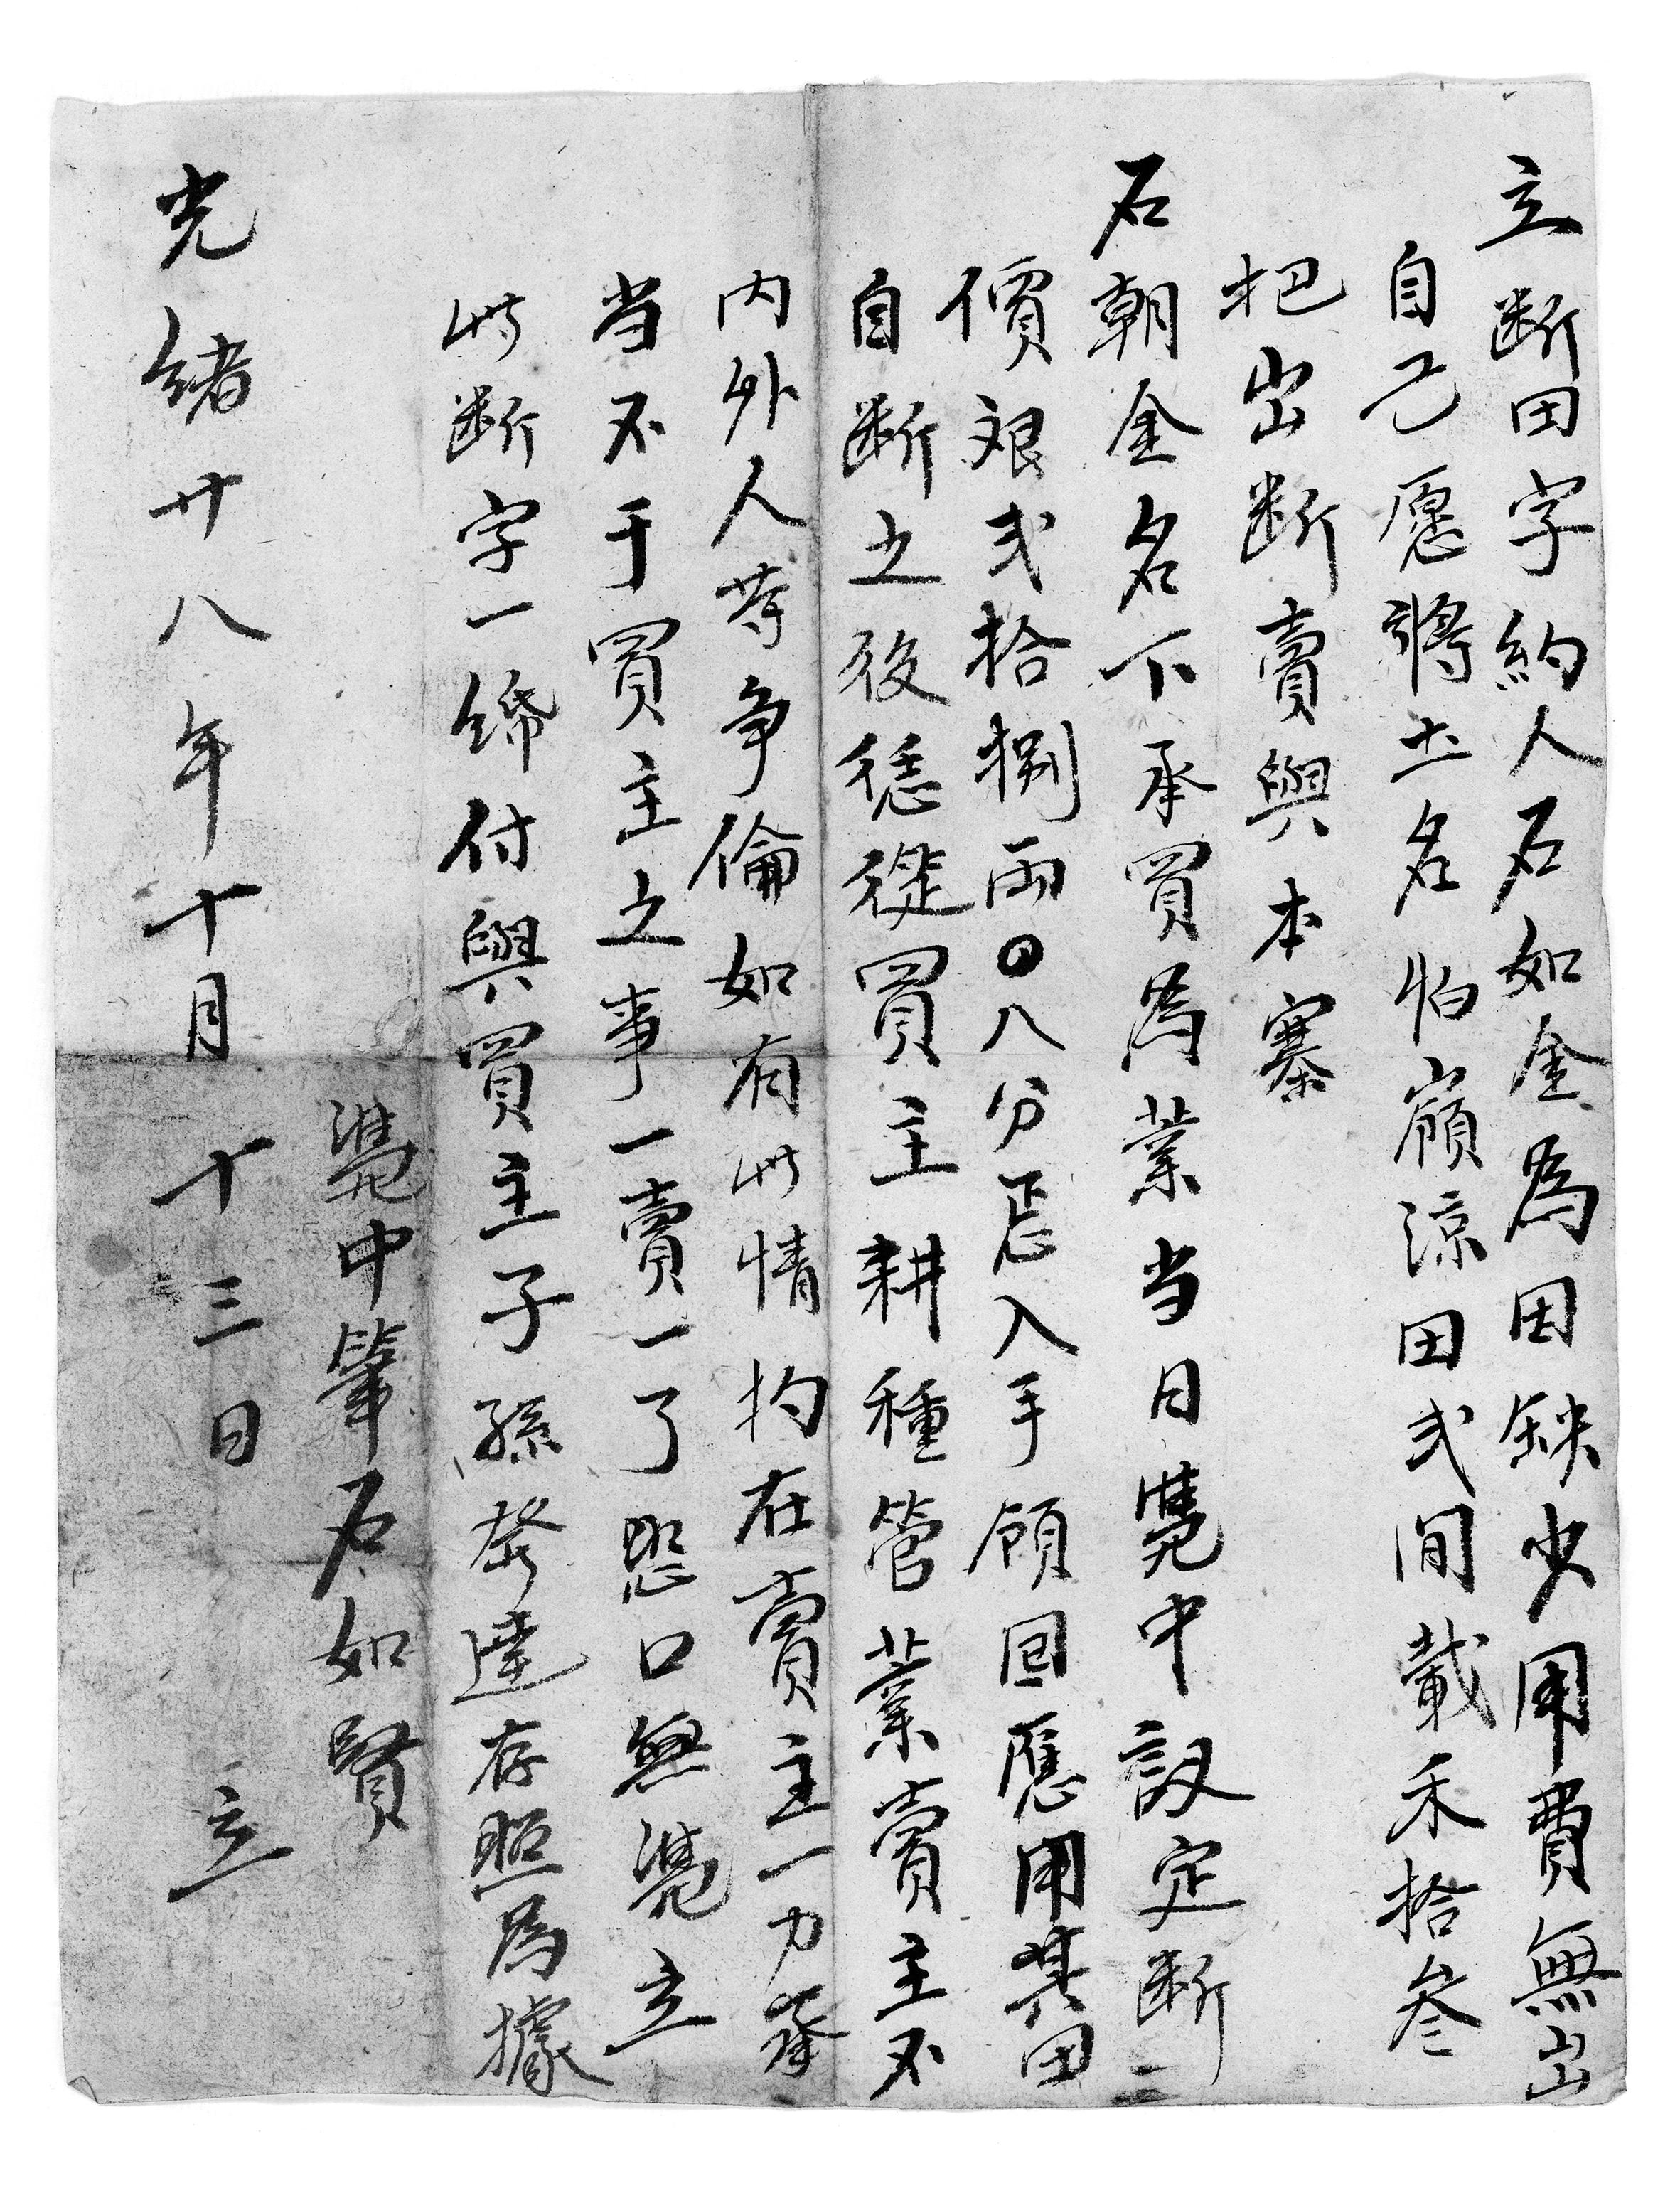 立断田字約人石如金為因缺少用費無出
自己愿將土名怕嶺涼田弍间載禾拾叁
把出断賣與本寨
石朝金名下承買為業当日凴中议定断
價艮弍拾捌両〇八分恴入手領回應用其田
自断之後穏從買主耕種管業賣主不
内外人等争倫如有此情扚在賣主一力承
当不于買主之事一賣一了恐口無凴立
此断字一綈付與買主子孫發達存照為據
凴中筆石如賢
光緒廿八年十月十三日立